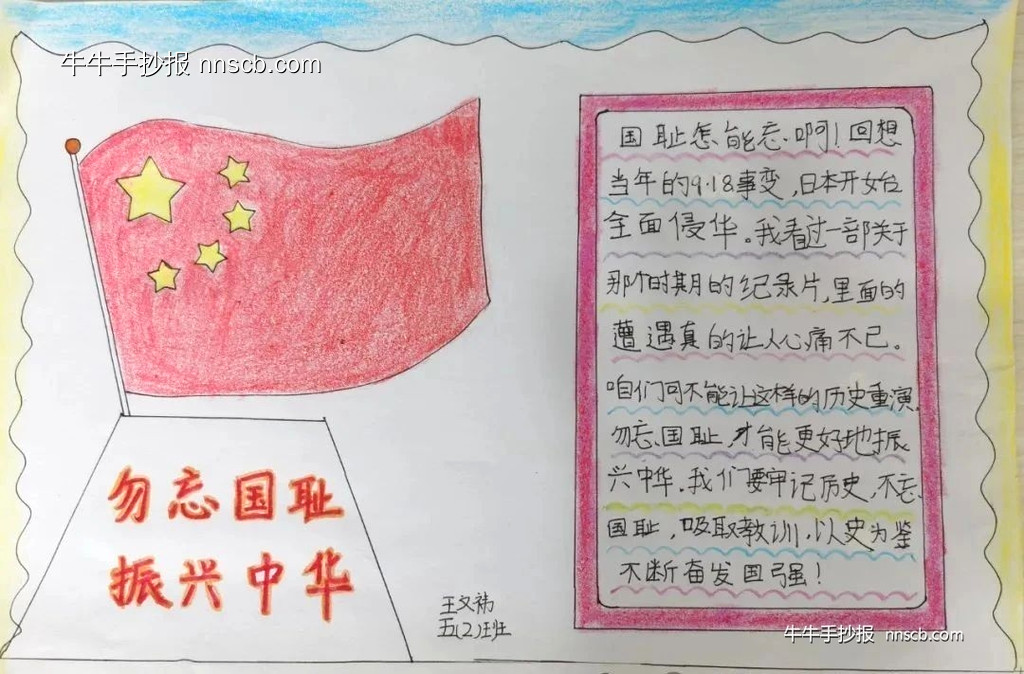 牛牛手抄报 nnscb.com
勿忘国耻
振兴中华
五(2)班
国耻怎能忘啊！回想
当年的9·18事变，日本开始
全面侵华。我看过一部关于
那个时期的纪录片，里面的
遭遇真的让人心痛不已。
咱们可不能让这样的历史重演，
勿忘国耻，才能更好地振
兴中华。我们要牢记历史，不忘
国耻，吸取教训，以史为鉴
不断奋发国强！
牛牛手抄报 nnscb.com